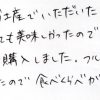 お土産でいただいた
ても美味しかったので
購入しました。フル
たので食べくらべが